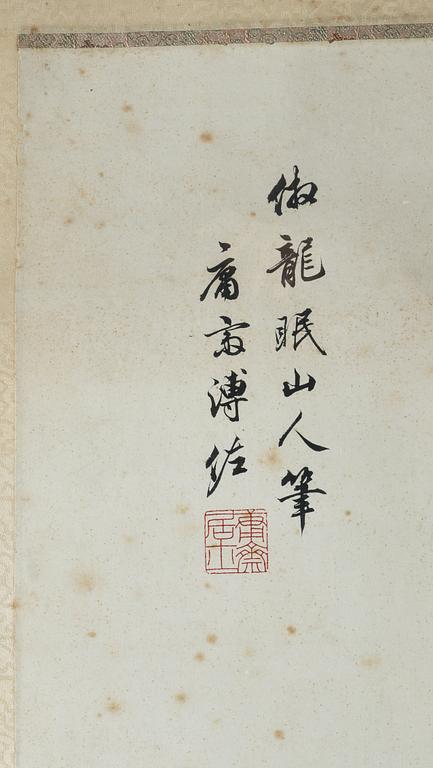 倣龍眠山人筆
庸齋溥佐
庸齋居士